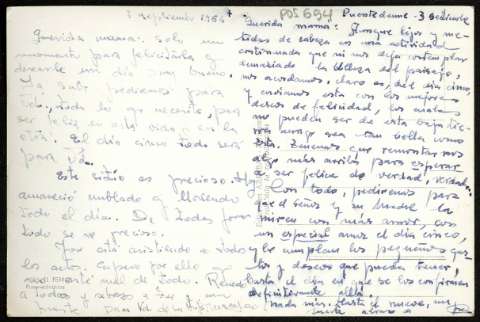 3 septiembre 1964
POS 694
Puentedeume - 3 Septiembre
Querida mamá: Solo un
momento para felicitarla y
desearle un día muy bueno.
Ya sabe pedimos para
Vd. todo lo
ser feliz en esta vida y en la
otra. El día cinco todo será
para Vd.
Este sitio es precioso. Hoy
amaneció nublado y lloviendo
todo el día. De todas formas
todo se ve precioso.
Por aquí asistiendo a todos
los actos. Espero por ello
a todos y abrazo a Vd. un
fuerte
Querida mamá: Aunque lejos y me-
tidos de cabeza en una actividad
continuada que ni nos deja contemplar
demasiado la belleza del paisaje,
nos acordamos, claro es, del día cinco,
y enviamos esta con los mejores
deseos de felicidad, los cuales
no pueden ser de esta baja tie-
rra aunque sea tan bella como
ésta. Tenemos que remontarnos
algo más arriba para esperar
a ser felices de verdad, verdad.
Con todo, pediremos para
que el Señor y su Madre la
miren con más amor, con
un especial amor el día cinco,
y le cumplan los pequeños gus-
tos y deseos que pueda tener,
hasta el día en que se los confirmen
definitivamente allá.
Nada más. Hasta el nueve, un
fuerte abrazo de